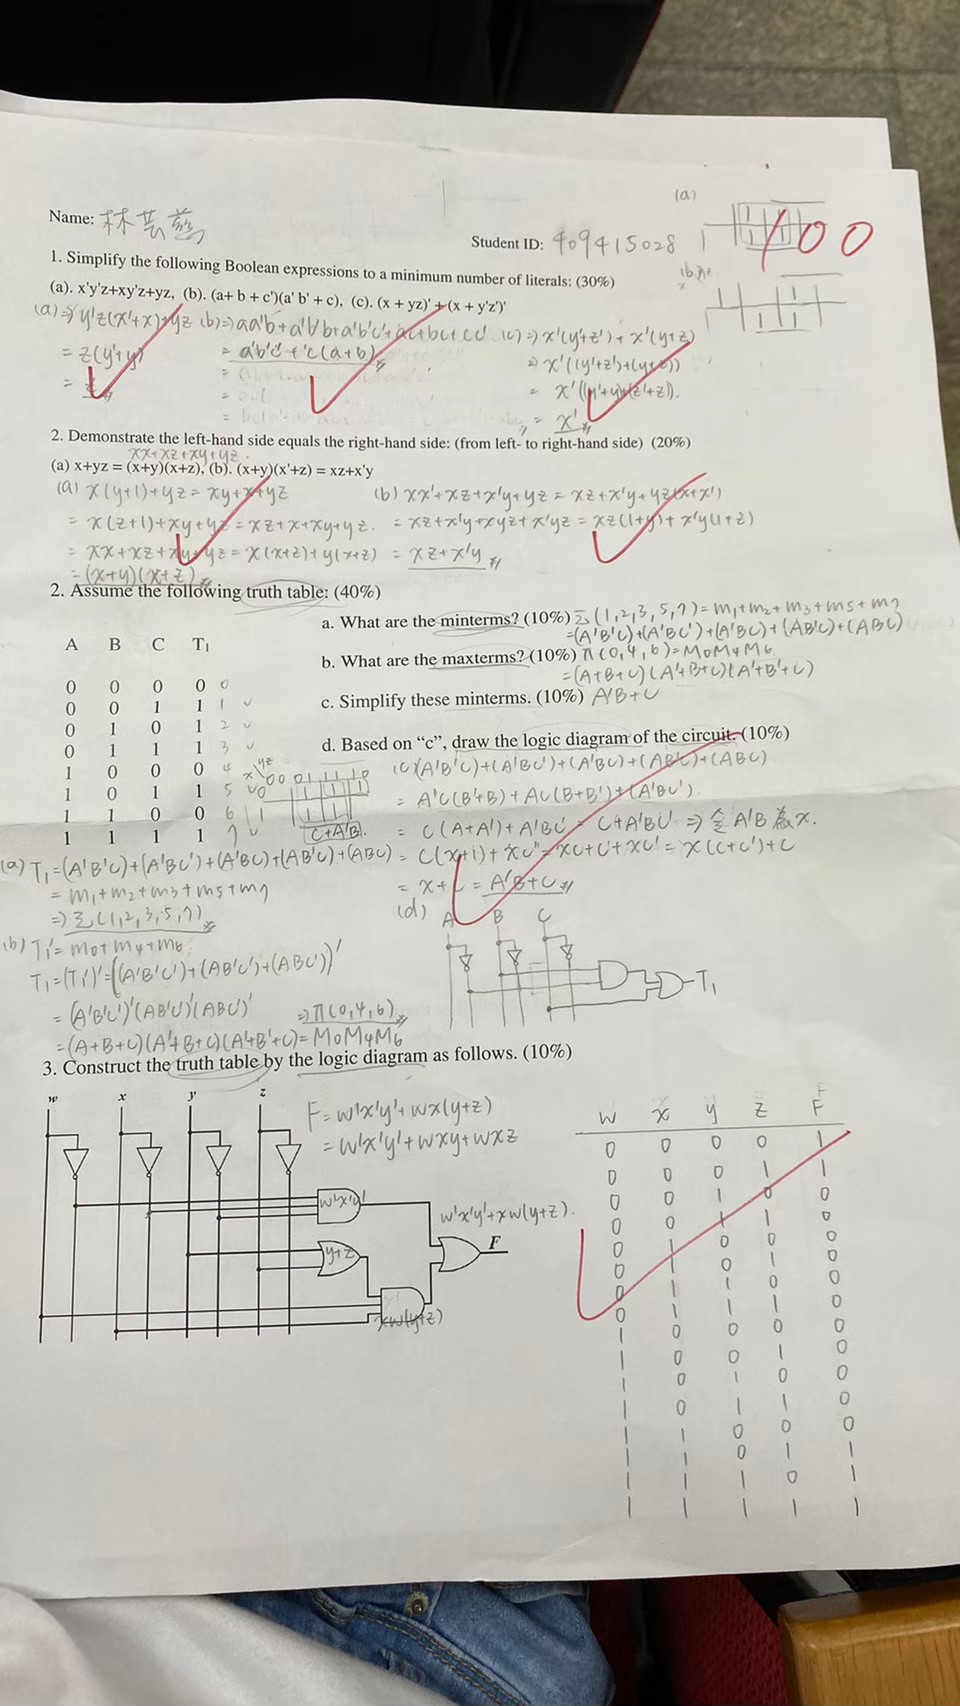 (a)
Name: 林芸
100
Student ID: 409415028
1. Simplify the following Boolean expressions to a minimum number of literals: (30%)
(a). x'y'z+xy'z+yz, (b). (a+ b + c')(a' b' + c), (c). (x + yz)' + (x + y'z')'
(a)⇒ y'z(x'+x)+yz (b)⇒ aa'b'+a'b'b+a'b'c'+ac+bc+cc' (c)⇒ x'(y'+z')+x'(y+z)
= z(y'+y) = a'b'c'+c(a+b) ⇒ x'((y'+z')+(y+z))
= z = x'((y'+y)+(z'+z)).
= x'
2. Demonstrate the left-hand side equals the right-hand side: (from left- to right-hand side) (20%)
xx+xz+xy+yz.
(a) x+yz = (x+y)(x+z), (b). (x+y)(x'+z) = xz+x'y
(a) x(y+1)+yz = xy+x+yz (b) xx'+xz+x'y+yz = xz+x'y+yz(x+x')
= x(z+1)+xy+yz = xz+x+xy+yz. = xz+x'y+xyz+x'yz = xz(1+y)+x'y(1+z)
= xx+xz+xy+yz = x(x+z)+y(x+z) = xz+x'y
= (x+y)(x+z)
2. Assume the following truth table: (40%)
a. What are the minterms? (10%) Σ(1,2,3,5,7)=m1+m2+m3+m5+m7
=(A'B'C)+(A'BC')+(A'BC)+(AB'C)+(ABC)
b. What are the maxterms? (10%) π(0,4,6)=M0M4M6
=(A+B+C)(A'+B+C)(A'+B'+C)
c. Simplify these minterms. (10%) A'B+C
d. Based on “c”, draw the logic diagram of the circuit. (10%)
A B C T1
0 0 0 0 0
0 0 1 1 1
0 1 0 1 2
0 1 1 1 3
1 0 0 0 4
1 0 1 1 5
1 1 0 0 6
1 1 1 1 7
x yz 00 01 11 10
0 1 1 1
1 1 1
C+A'B.
(C)(A'B'C)+(A'BC')+(A'BC)+(AB'C)+(ABC)
= A'C(B'+B)+AC(B+B')+(A'BC').
= C(A+A')+A'BC' = C+A'BC' ⇒ 令A'B為x.
= C(x+1)+xC' = xC+C+xC' = x(C+C')+C
= x+C = A'B+C
(a) T1=(A'B'C)+(A'BC')+(A'BC)+(AB'C)+(ABC)
= m1+m2+m3+m5+m7
⇒ Σ(1,2,3,5,7)
(b) T1'= m0+m4+m6.
T1=(T1')'=((A'B'C')+(AB'C')+(ABC'))'
= (A'B'C')'(AB'C')'(ABC')' ⇒π(0,4,6)
=(A+B+C)(A'+B+C)(A'+B'+C)=M0M4M6
(d) A B C
T1
3. Construct the truth table by the logic diagram as follows. (10%)
w x y z
F=w'x'y'+wx(y+z)
=w'x'y'+wxy+wxz
w'x'y'
w'x'y'+xw(y+z).
y+z
F
xw(y+z)
w x y z F
0 0 0 0 1
0 0 0 1 1
0 0 1 0 0
0 0 1 1 0
0 1 0 0 0
0 1 0 1 0
0 1 1 0 0
0 1 1 1 0
1 0 0 0 0
1 0 0 1 0
1 0 1 0 0
1 0 1 1 0
1 1 0 0 0
1 1 0 1 1
1 1 1 0 1
1 1 1 1 1